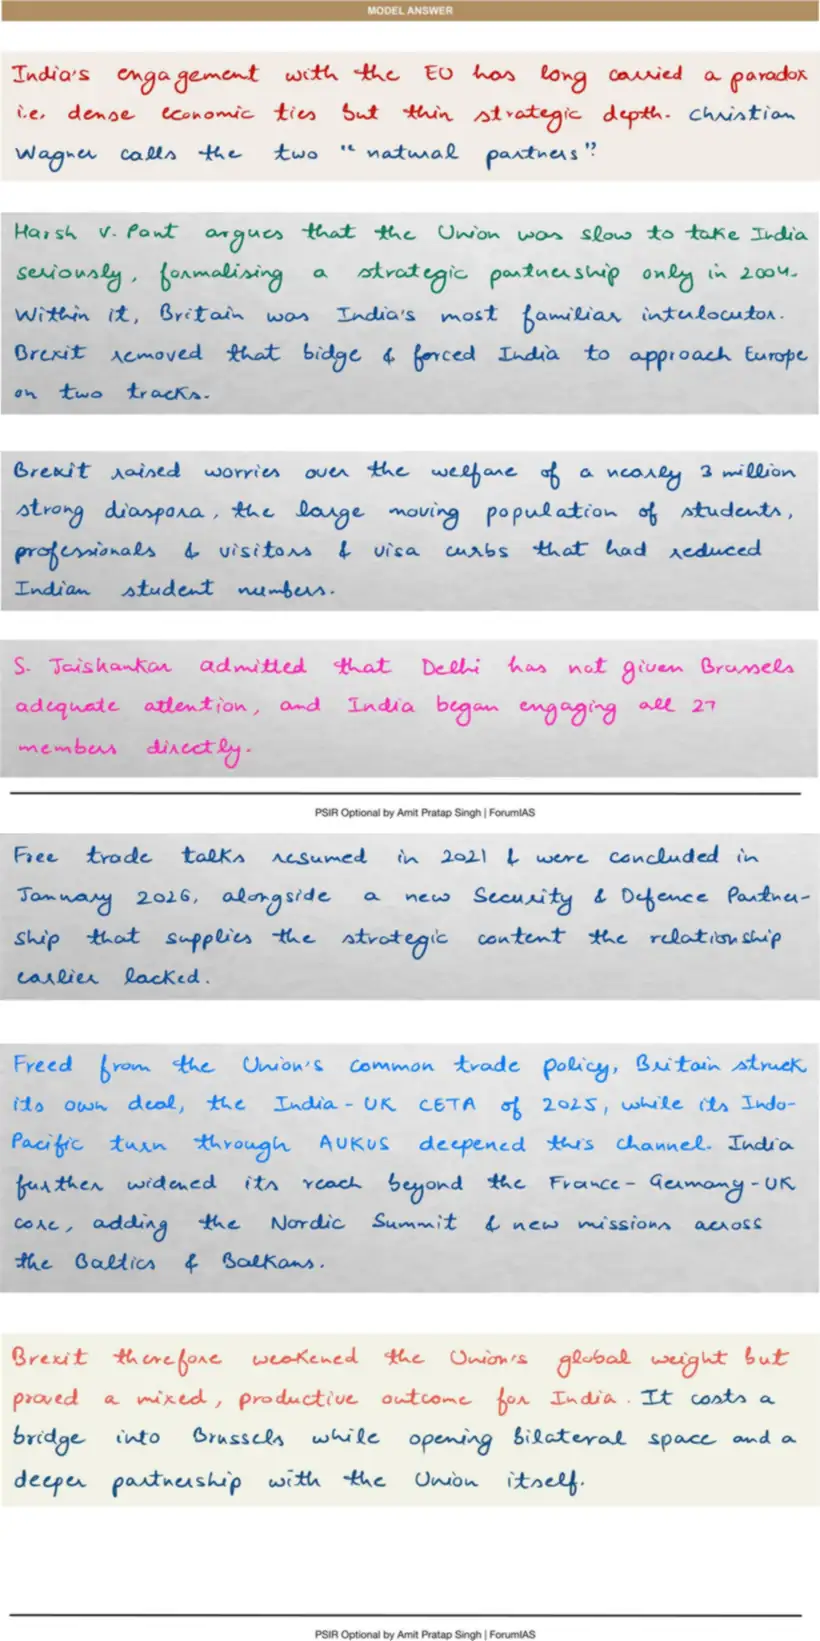 MODEL ANSWER
India's engagement with the EU has long carried a paradox
i.e. dense economic ties but thin strategic depth. Christian
Wagner calls the two "natural partners".
Harsh V. Pant argues that the Union was slow to take India
seriously, formalising a strategic partnership only in 2004.
Within it, Britain was India's most familiar interlocutor.
Brexit removed that bridge & forced India to approach Europe
on two tracks.
Brexit raised worries over the welfare of a nearly 3 million
strong diaspora, the large moving population of students,
professionals & visitors & visa curbs that had reduced
Indian student numbers.
S. Jaishankar admitted that Delhi has not given Brussels
adequate attention, and India began engaging all 27
members directly.
PSIR Optional by Amit Pratap Singh | ForumIAS
Free trade talks resumed in 2021 & were concluded in
January 2026, alongside a new Security & Defence Partner-
ship that supplies the strategic content the relationship
earlier lacked.
Freed from the Union's common trade policy, Britain struck
its own deal, the India-UK CETA of 2025, while its Indo-
Pacific turn through AUKUS deepened this channel. India
further widened its reach beyond the France-Germany-UK
core, adding the Nordic Summit & new missions across
the Baltics & Balkans.
Brexit therefore weakened the Union's global weight but
proved a mixed, productive outcome for India. It costs a
bridge into Brussels while opening bilateral space and a
deeper partnership with the Union itself.
PSIR Optional by Amit Pratap Singh | ForumIAS